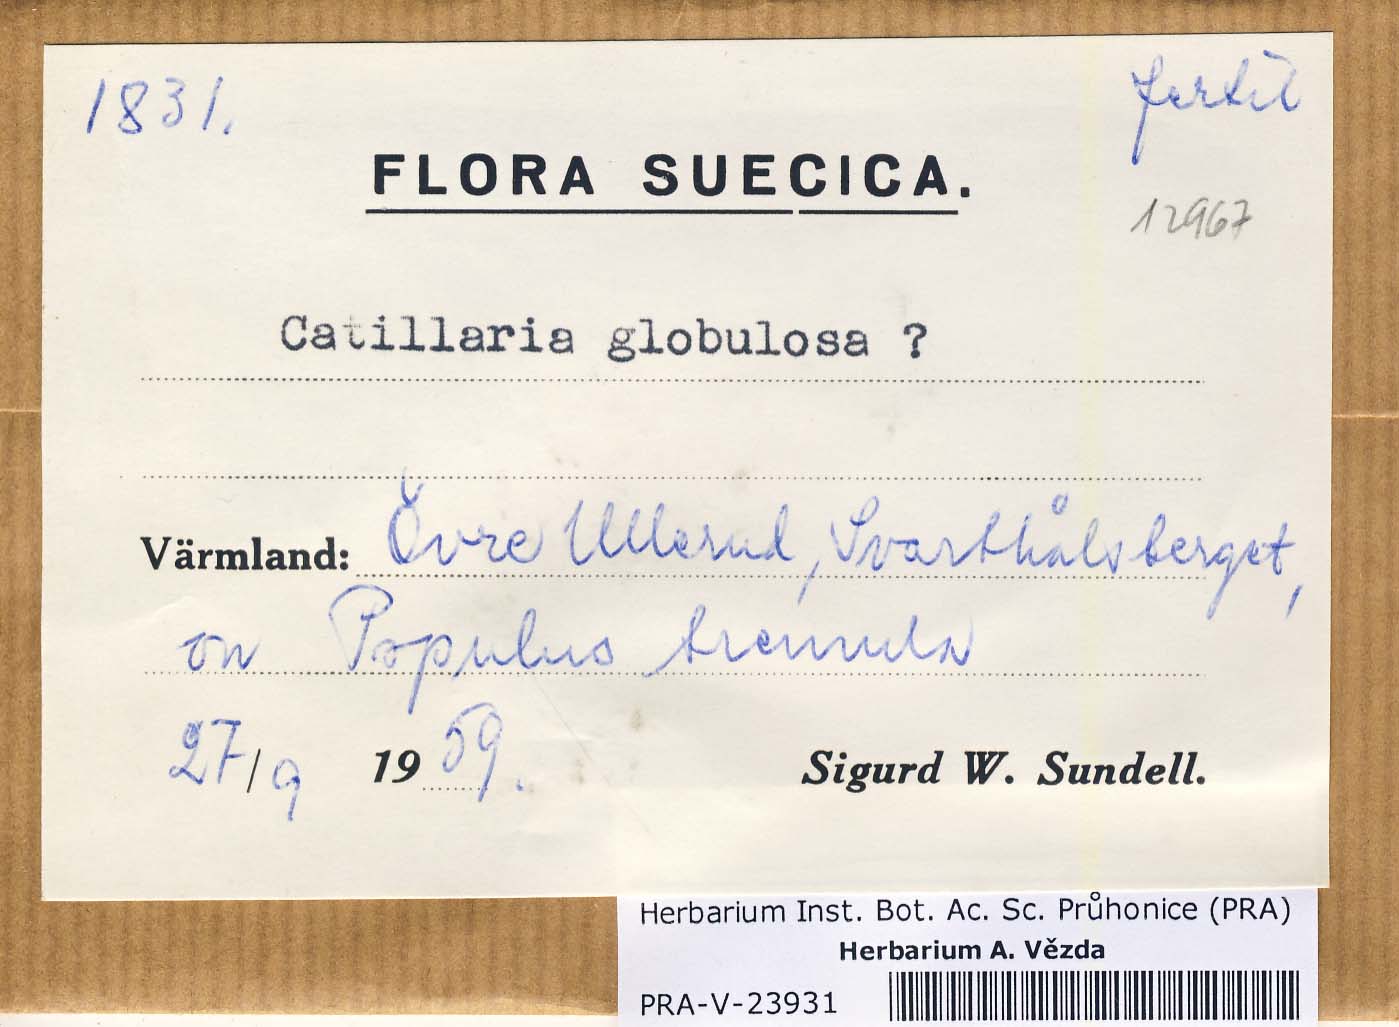 1831.
fertil
FLORA SUECICA.
12967
Catillaria globulosa ?
Värmland: Övre Ullerud, Svarthålsberget,
on Populus tremula
27/9 1959.
Sigurd W. Sundell.
Herbarium Inst. Bot. Ac. Sc. Průhonice (PRA)
Herbarium A. Vězda
PRA-V-23931